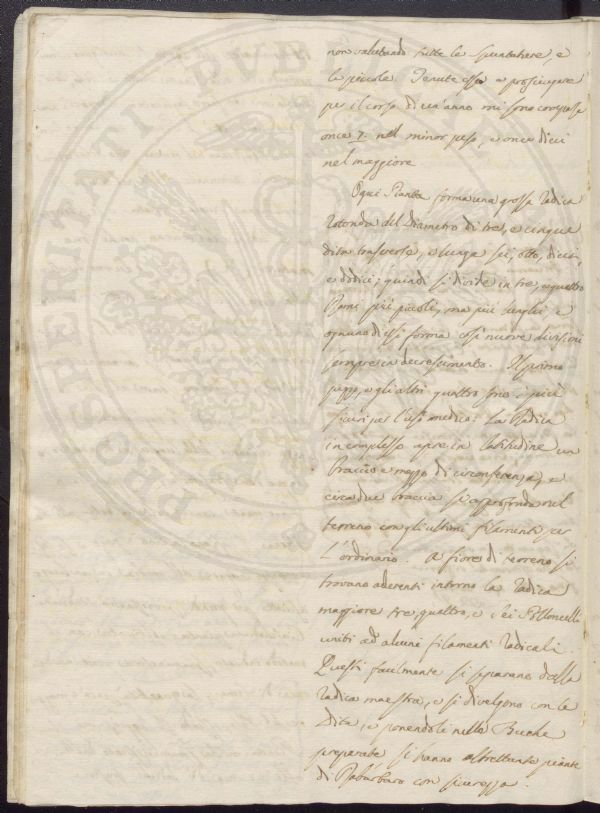 non valutando tutte le Spuntature, e
le piccole. Tenute esse a prosciugare
per il corso di un'anno mi sono comparse
once 7. nel minor peso, e once dieci
nel maggiore
Ogni Pianta forma una grossa Radica
Rotonda del Diametro di tre, e cinque
dita trasverse, e lunga sei, otto, dieci,
e dodici; quindi si divide in tre, e quattro
Rami più piccoli, ma più lunghi e
ognuno di essi forma nuove divisioni
sempre in decrescimento. Il primo
pezzo, e gli altri quattro sono i più
sicuri per l'uso medico: La Radica
in complesso apre in latitudine un
Braccio e mezzo di circonferenza, e
circa due braccia si approfonda nel
terreno con gli ultimi filamenti per
L'ordinario. A fiore di terreno si
trovano aderenti intorno la Radica
maggiore tre, quattro, e sei Polloncelli
uniti ad alcuni filamenti Radicali.
Questi facilmente si separano dalla
Radica maestra, e si divelgono con le
Dita, e ponendoli nelle Buche
preparate si hanno altrettante piante
di Rabarbaro con sicurezza.
PROSPERITATI PUBLICAE